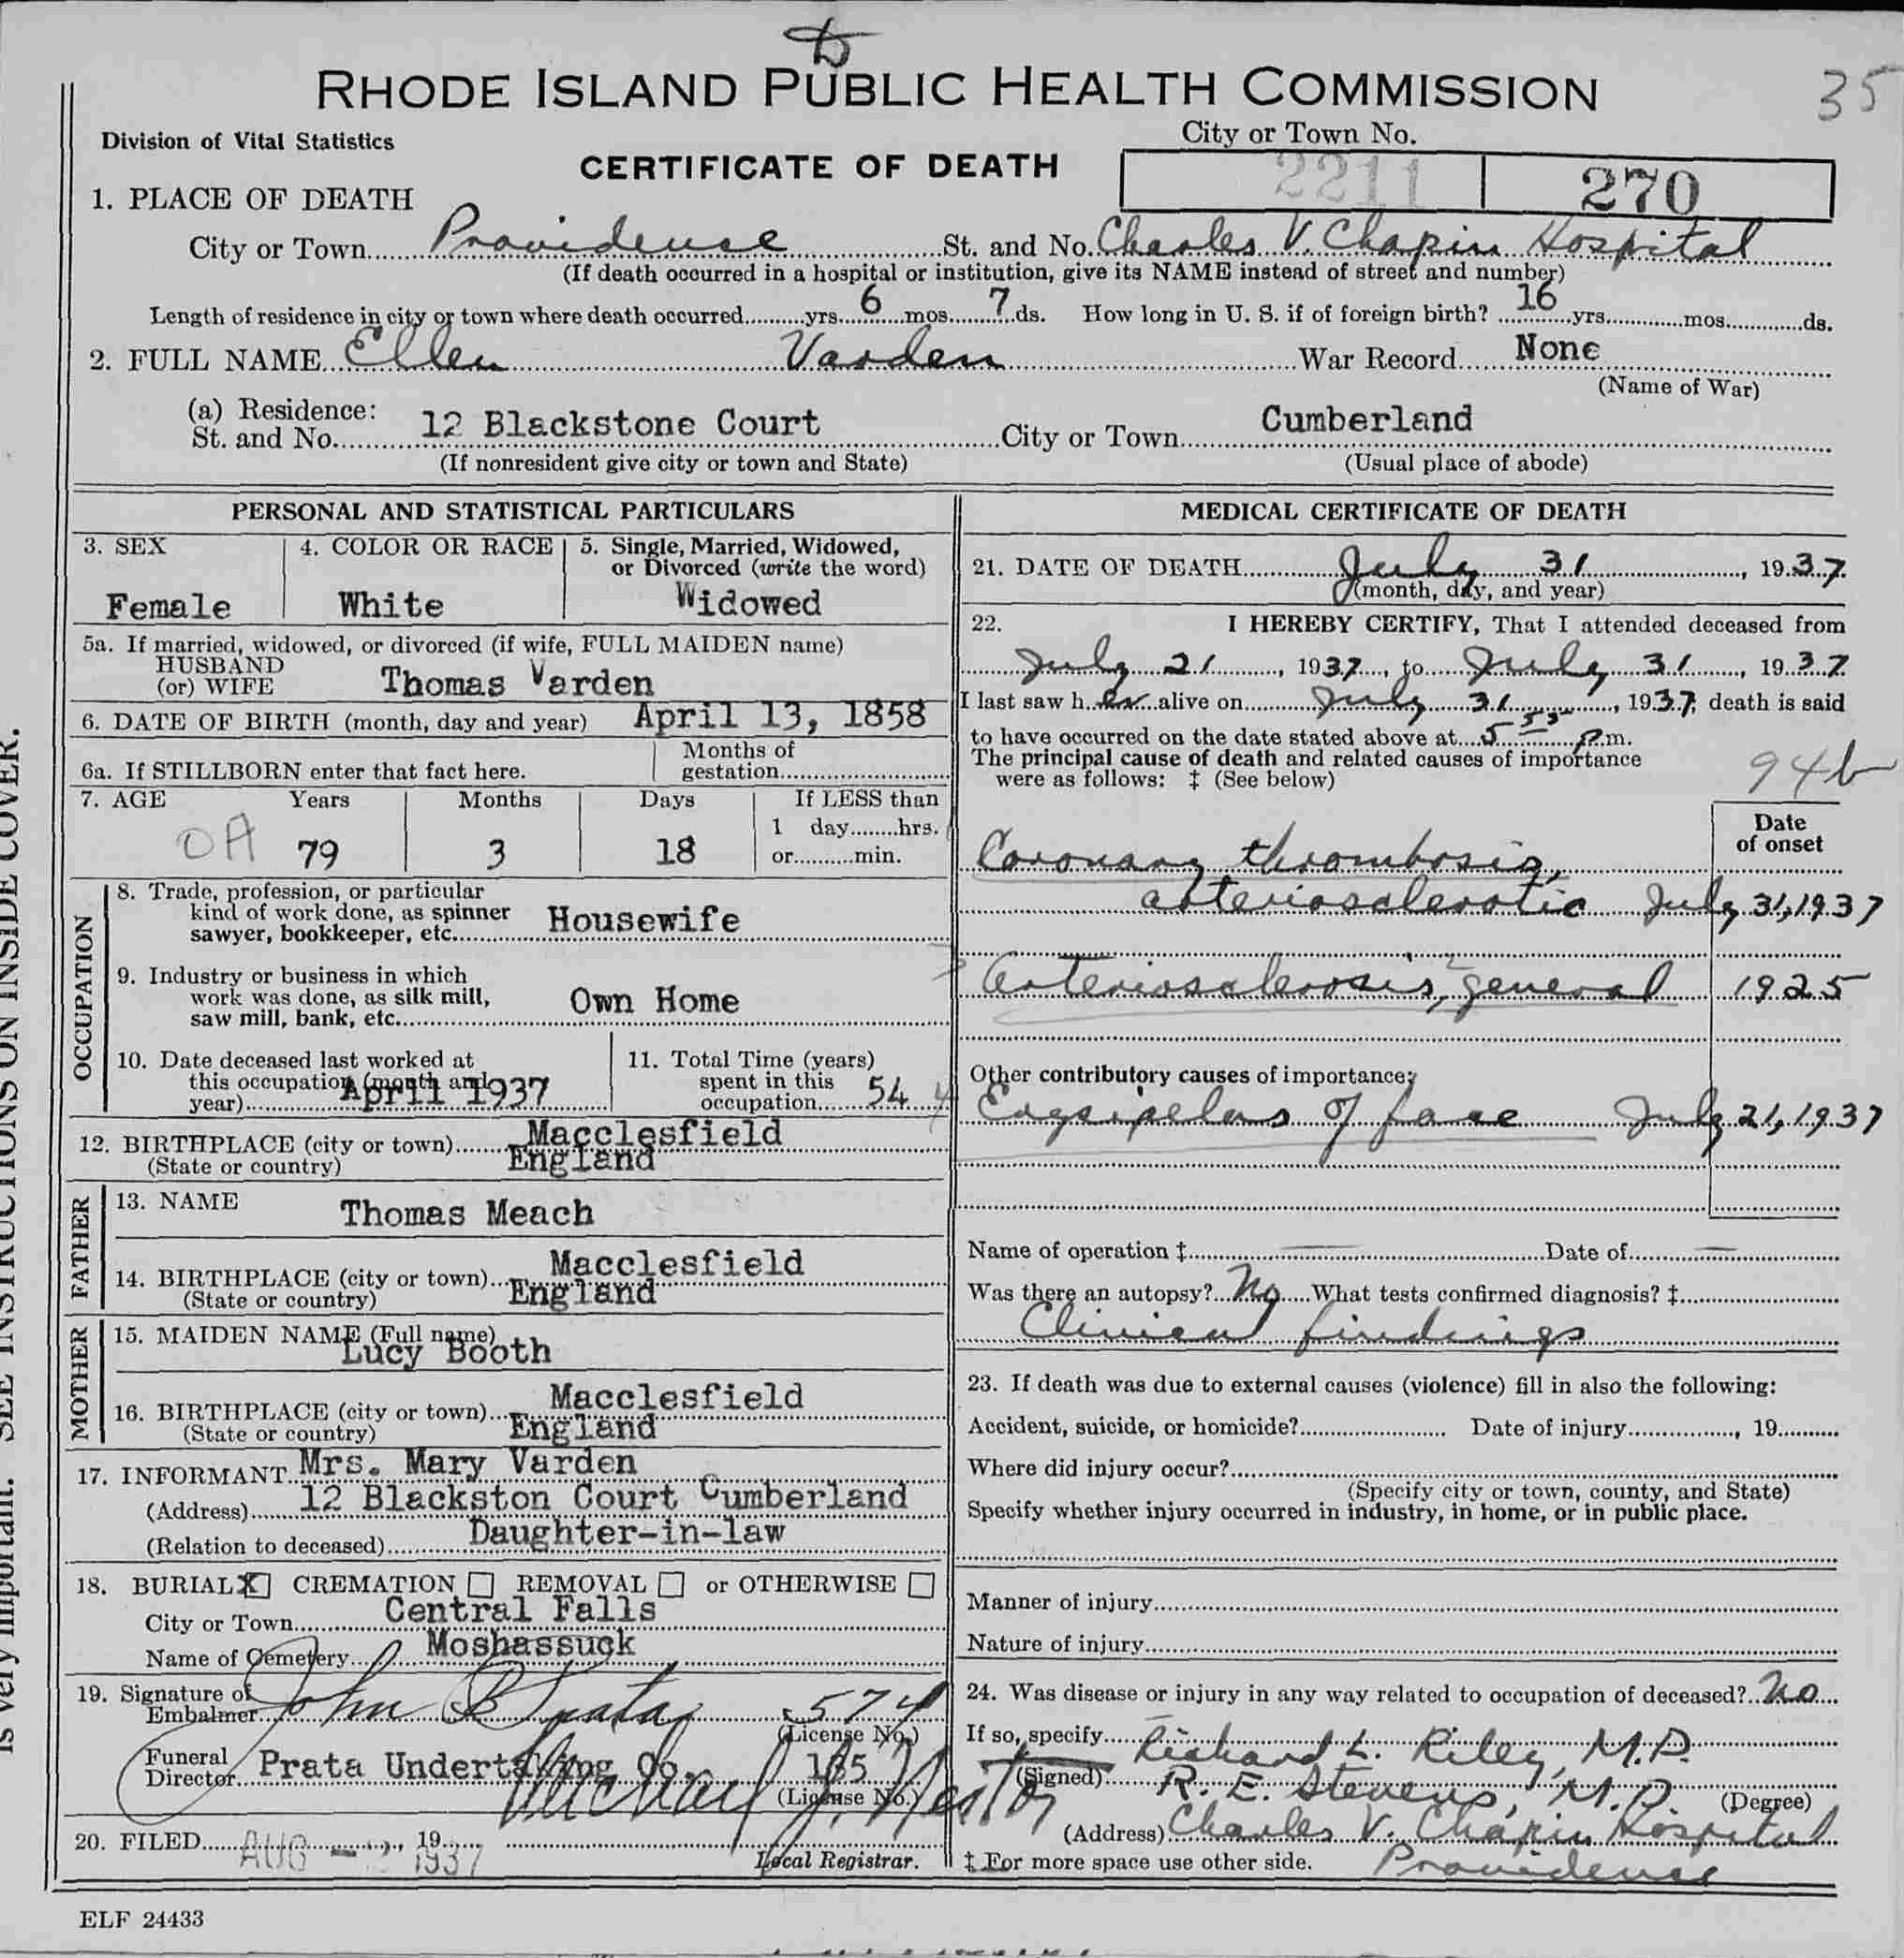 35
RHODE ISLAND PUBLIC HEALTH COMMISSION
Division of Vital Statistics
City or Town No.
CERTIFICATE OF DEATH
2211 270
1. PLACE OF DEATH
City or Town Providence St. and No. Charles V. Chapin Hospital
(If death occurred in a hospital or institution, give its NAME instead of street and number)
Length of residence in city or town where death occurred yrs. 6 mos. 7 ds. How long in U. S. if of foreign birth? 16 yrs. mos. ds.
2. FULL NAME Ellen Varden War Record None
(Name of War)
(a) Residence:
St. and No. 12 Blackstone Court City or Town Cumberland
(If nonresident give city or town and State) (Usual place of abode)
PERSONAL AND STATISTICAL PARTICULARS
3. SEX 4. COLOR OR RACE 5. Single, Married, Widowed,
or Divorced (write the word)
Female White Widowed
5a. If married, widowed, or divorced (if wife, FULL MAIDEN name)
HUSBAND
(or) WIFE Thomas Varden
6. DATE OF BIRTH (month, day and year) April 13, 1858
6a. If STILLBORN enter that fact here. Months of
gestation
7. AGE Years Months Days If LESS than
1 day hrs.
OA 79 3 18 or min.
OCCUPATION
8. Trade, profession, or particular
kind of work done, as spinner
sawyer, bookkeeper, etc. Housewife
9. Industry or business in which
work was done, as silk mill,
saw mill, bank, etc. Own Home
10. Date deceased last worked at
this occupation (month and
year) April 1937
11. Total Time (years)
spent in this
occupation 54
12. BIRTHPLACE (city or town) Macclesfield
(State or country) England
FATHER
13. NAME Thomas Meach
14. BIRTHPLACE (city or town) Macclesfield
(State or country) England
MOTHER
15. MAIDEN NAME (Full name)
Lucy Booth
16. BIRTHPLACE (city or town) Macclesfield
(State or country) England
17. INFORMANT Mrs. Mary Varden
(Address) 12 Blackston Court Cumberland
(Relation to deceased) Daughter-in-law
18. BURIAL X CREMATION REMOVAL or OTHERWISE
City or Town Central Falls
Name of Cemetery Moshassuck
19. Signature of
Embalmer John B Prata 574
(License No.)
Funeral
Director Prata Undertaking Co. 185
(License No.)
20. FILED AUG 1937 19
Local Registrar.
MEDICAL CERTIFICATE OF DEATH
21. DATE OF DEATH July 31, 1937
(month, day, and year)
22. I HEREBY CERTIFY, That I attended deceased from
July 21, 1937, to July 31, 1937
I last saw h er alive on July 31, 1937, death is said
to have occurred on the date stated above at 5 55 P.m.
The principal cause of death and related causes of importance
were as follows: ‡ (See below)
94b
Date
of onset
Coronary thrombosis,
arteriosclerotic July 31, 1937
Arteriosclerosis, general 1925
Other contributory causes of importance:
Erysipelas of face July 21, 1937
Name of operation ‡ — Date of —
Was there an autopsy? No What tests confirmed diagnosis? ‡
Clinical findings
23. If death was due to external causes (violence) fill in also the following:
Accident, suicide, or homicide? Date of injury , 19
Where did injury occur?
(Specify city or town, county, and State)
Specify whether injury occurred in industry, in home, or in public place.
Manner of injury
Nature of injury
24. Was disease or injury in any way related to occupation of deceased? No
If so, specify Richard L. Riley, M.D.
(Signed) R. E. Stevens, M.D. (Degree)
(Address) Charles V. Chapin Hospital
‡ For more space use other side. Providence
ELF 24433
is very important. SEE INSTRUCTIONS ON INSIDE COVER.